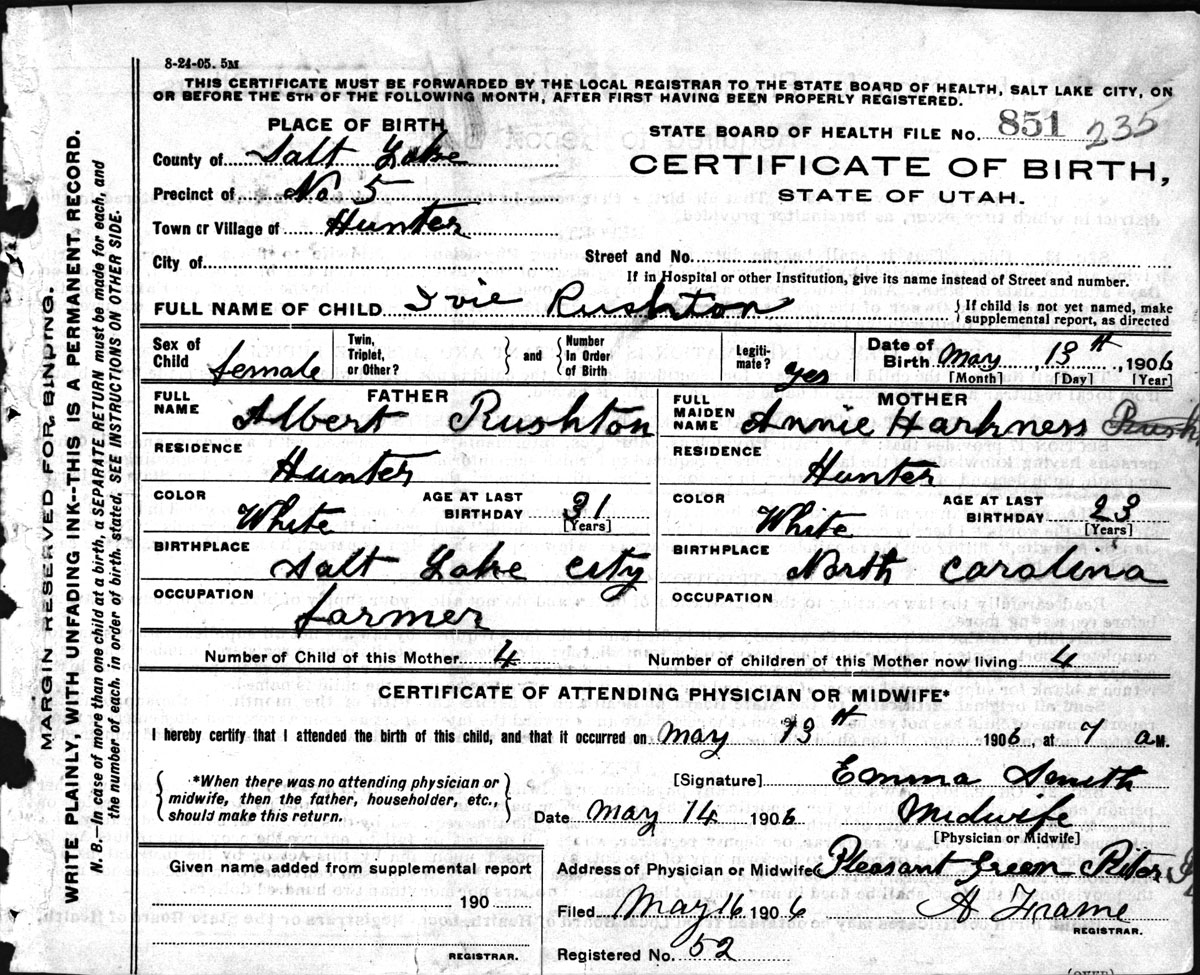 8-24-05. 5M
THIS CERTIFICATE MUST BE FORWARDED BY THE LOCAL REGISTRAR TO THE STATE BOARD OF HEALTH, SALT LAKE CITY, ON
OR BEFORE THE 5TH OF THE FOLLOWING MONTH, AFTER FIRST HAVING BEEN PROPERLY REGISTERED.
PLACE OF BIRTH
STATE BOARD OF HEALTH FILE No. 851 235
County of Salt Lake
CERTIFICATE OF BIRTH,
Precinct of No 5
STATE OF UTAH.
Town or Village of Hunter
City of
Street and No.
If in Hospital or other Institution, give its name instead of Street and number.
FULL NAME OF CHILD Ivie Rushton
{ If child is not yet named, make
supplemental report, as directed
Sex of Child female
Twin, Triplet, or Other? } and { Number In Order of Birth
Legitimate? yes
Date of Birth May 13th, 1906
[Month] [Day] [Year]
FATHER
FULL NAME Albert Rushton
MOTHER
FULL MAIDEN NAME Annie Harkness
RESIDENCE Hunter
RESIDENCE Hunter
COLOR White AGE AT LAST BIRTHDAY 31 [Years]
COLOR White AGE AT LAST BIRTHDAY 23 [Years]
BIRTHPLACE Salt Lake City
BIRTHPLACE North Carolina
OCCUPATION farmer
OCCUPATION
Number of Child of this Mother 4 Number of children of this Mother now living 4
CERTIFICATE OF ATTENDING PHYSICIAN OR MIDWIFE*
I hereby certify that I attended the birth of this child, and that it occurred on May 13th 1906, at 7 a M.
{ *When there was no attending physician or
midwife, then the father, householder, etc.,
should make this return. }
[Signature] Emma Smith
Date May 14 1906 Midwife
[Physician or Midwife]
Given name added from supplemental report
190
REGISTRAR.
Address of Physician or Midwife Pleasant Green Riter
Filed May 16 1906 A Frame
REGISTRAR.
Registered No. 52
(OVER)
MARGIN RESERVED FOR BINDING.
WRITE PLAINLY, WITH UNFADING INK--THIS IS A PERMANENT RECORD.
N. B.—In case of more than one child at a birth, a SEPARATE RETURN must be made for each, and
the number of each, in order of birth, stated. SEE INSTRUCTIONS ON OTHER SIDE.